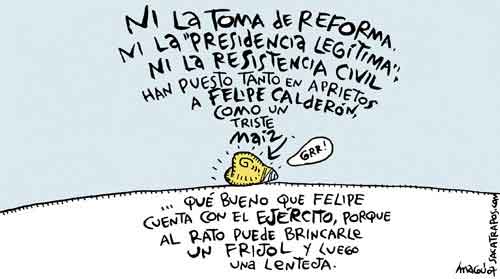 NI LA TOMA DE REFORMA.
NI LA "PRESIDENCIA LEGÍTIMA",
NI LA RESISTENCIA CIVIL
HAN PUESTO TANTO EN APRIETOS
A FELIPE CALDERÓN,
COMO UN
TRISTE
MAÍZ
GRR!
... QUÉ BUENO QUE FELIPE
CUENTA CON EL EJÉRCITO, PORQUE
AL RATO PUEDE BRINCARLE
UN FRIJOL Y LUEGO
UNA LENTEJA.